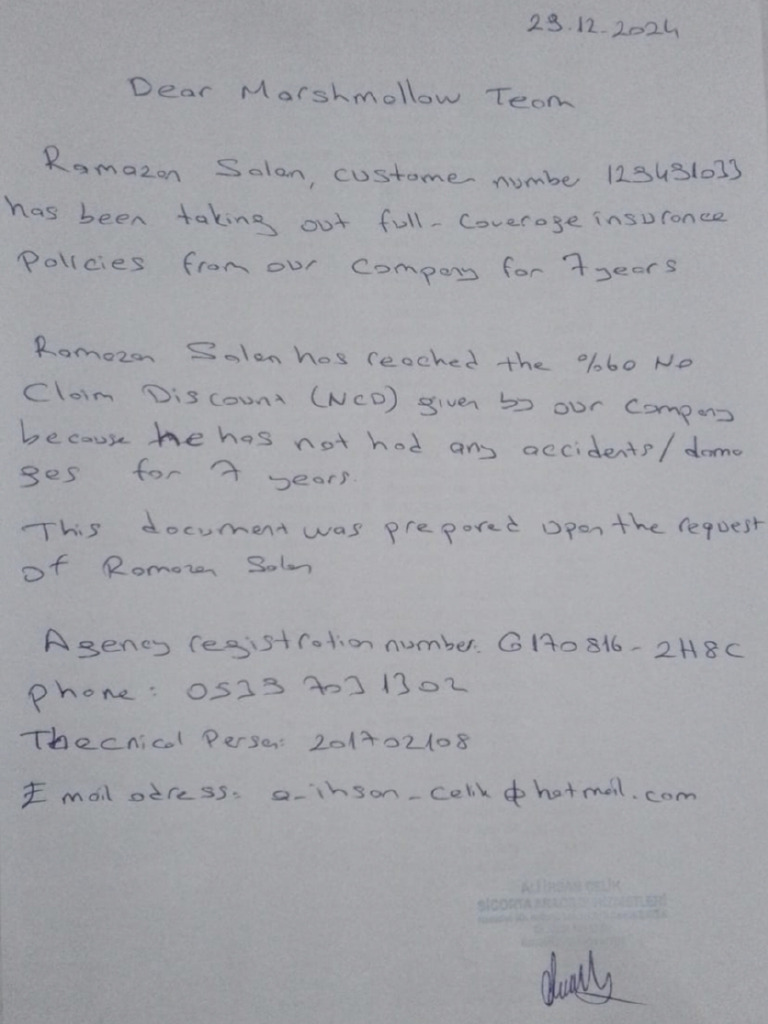 29.12.2024
Dear Marshmallow Team
Ramazan Salan, customer number 123431033
has been taking out full-coverage insurance
Policies from our company for 7 years
Ramazan Salan has reached the %60 No
Claim Discount (NCD) given by our company
because he has not had any accidents/dama
ges for 7 years.
This document was prepared upon the request
of Ramazan Salan
Agency registration number: G170816-2H8C
phone: 0533 703 1302
Thecnical Person: 201702108
E mail adress: a_ihsan_celik@hotmail.com
ALİ İHSAN ÇELİK
SİGORTA ARACILIK HİZMETLERİ